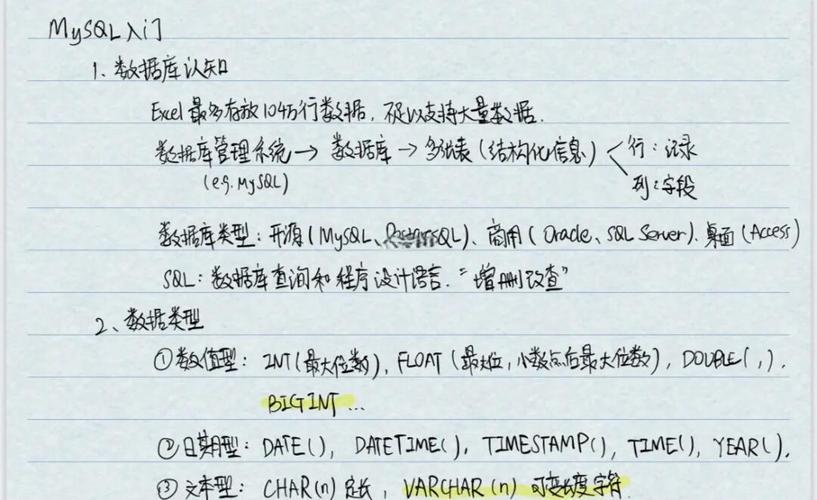 MySQL入门
1、数据库认知
Excel最多存放104万行数据，不足以支持大量数据.
数据库管理系统→数据库→多张表(结构化信息) 行：记录
(e.g. MySQL) 列：字段
数据库类型：开源(MySQL、PostgreSQL)、商用(Oracle、SQL Server)、桌面(Access)
SQL：数据库查询和程序设计语言. “增删改查”
2、数据类型
①数值型：INT(最大位数), FLOAT(最大位, 小数点后最大位数), DOUBLE( , ).
BIGINT...
②日期型：DATE(), DATETIME(), TIMESTAMP(), TIME(), YEAR().
③文本型：CHAR(n)定长, VARCHAR(n)可变长度字符